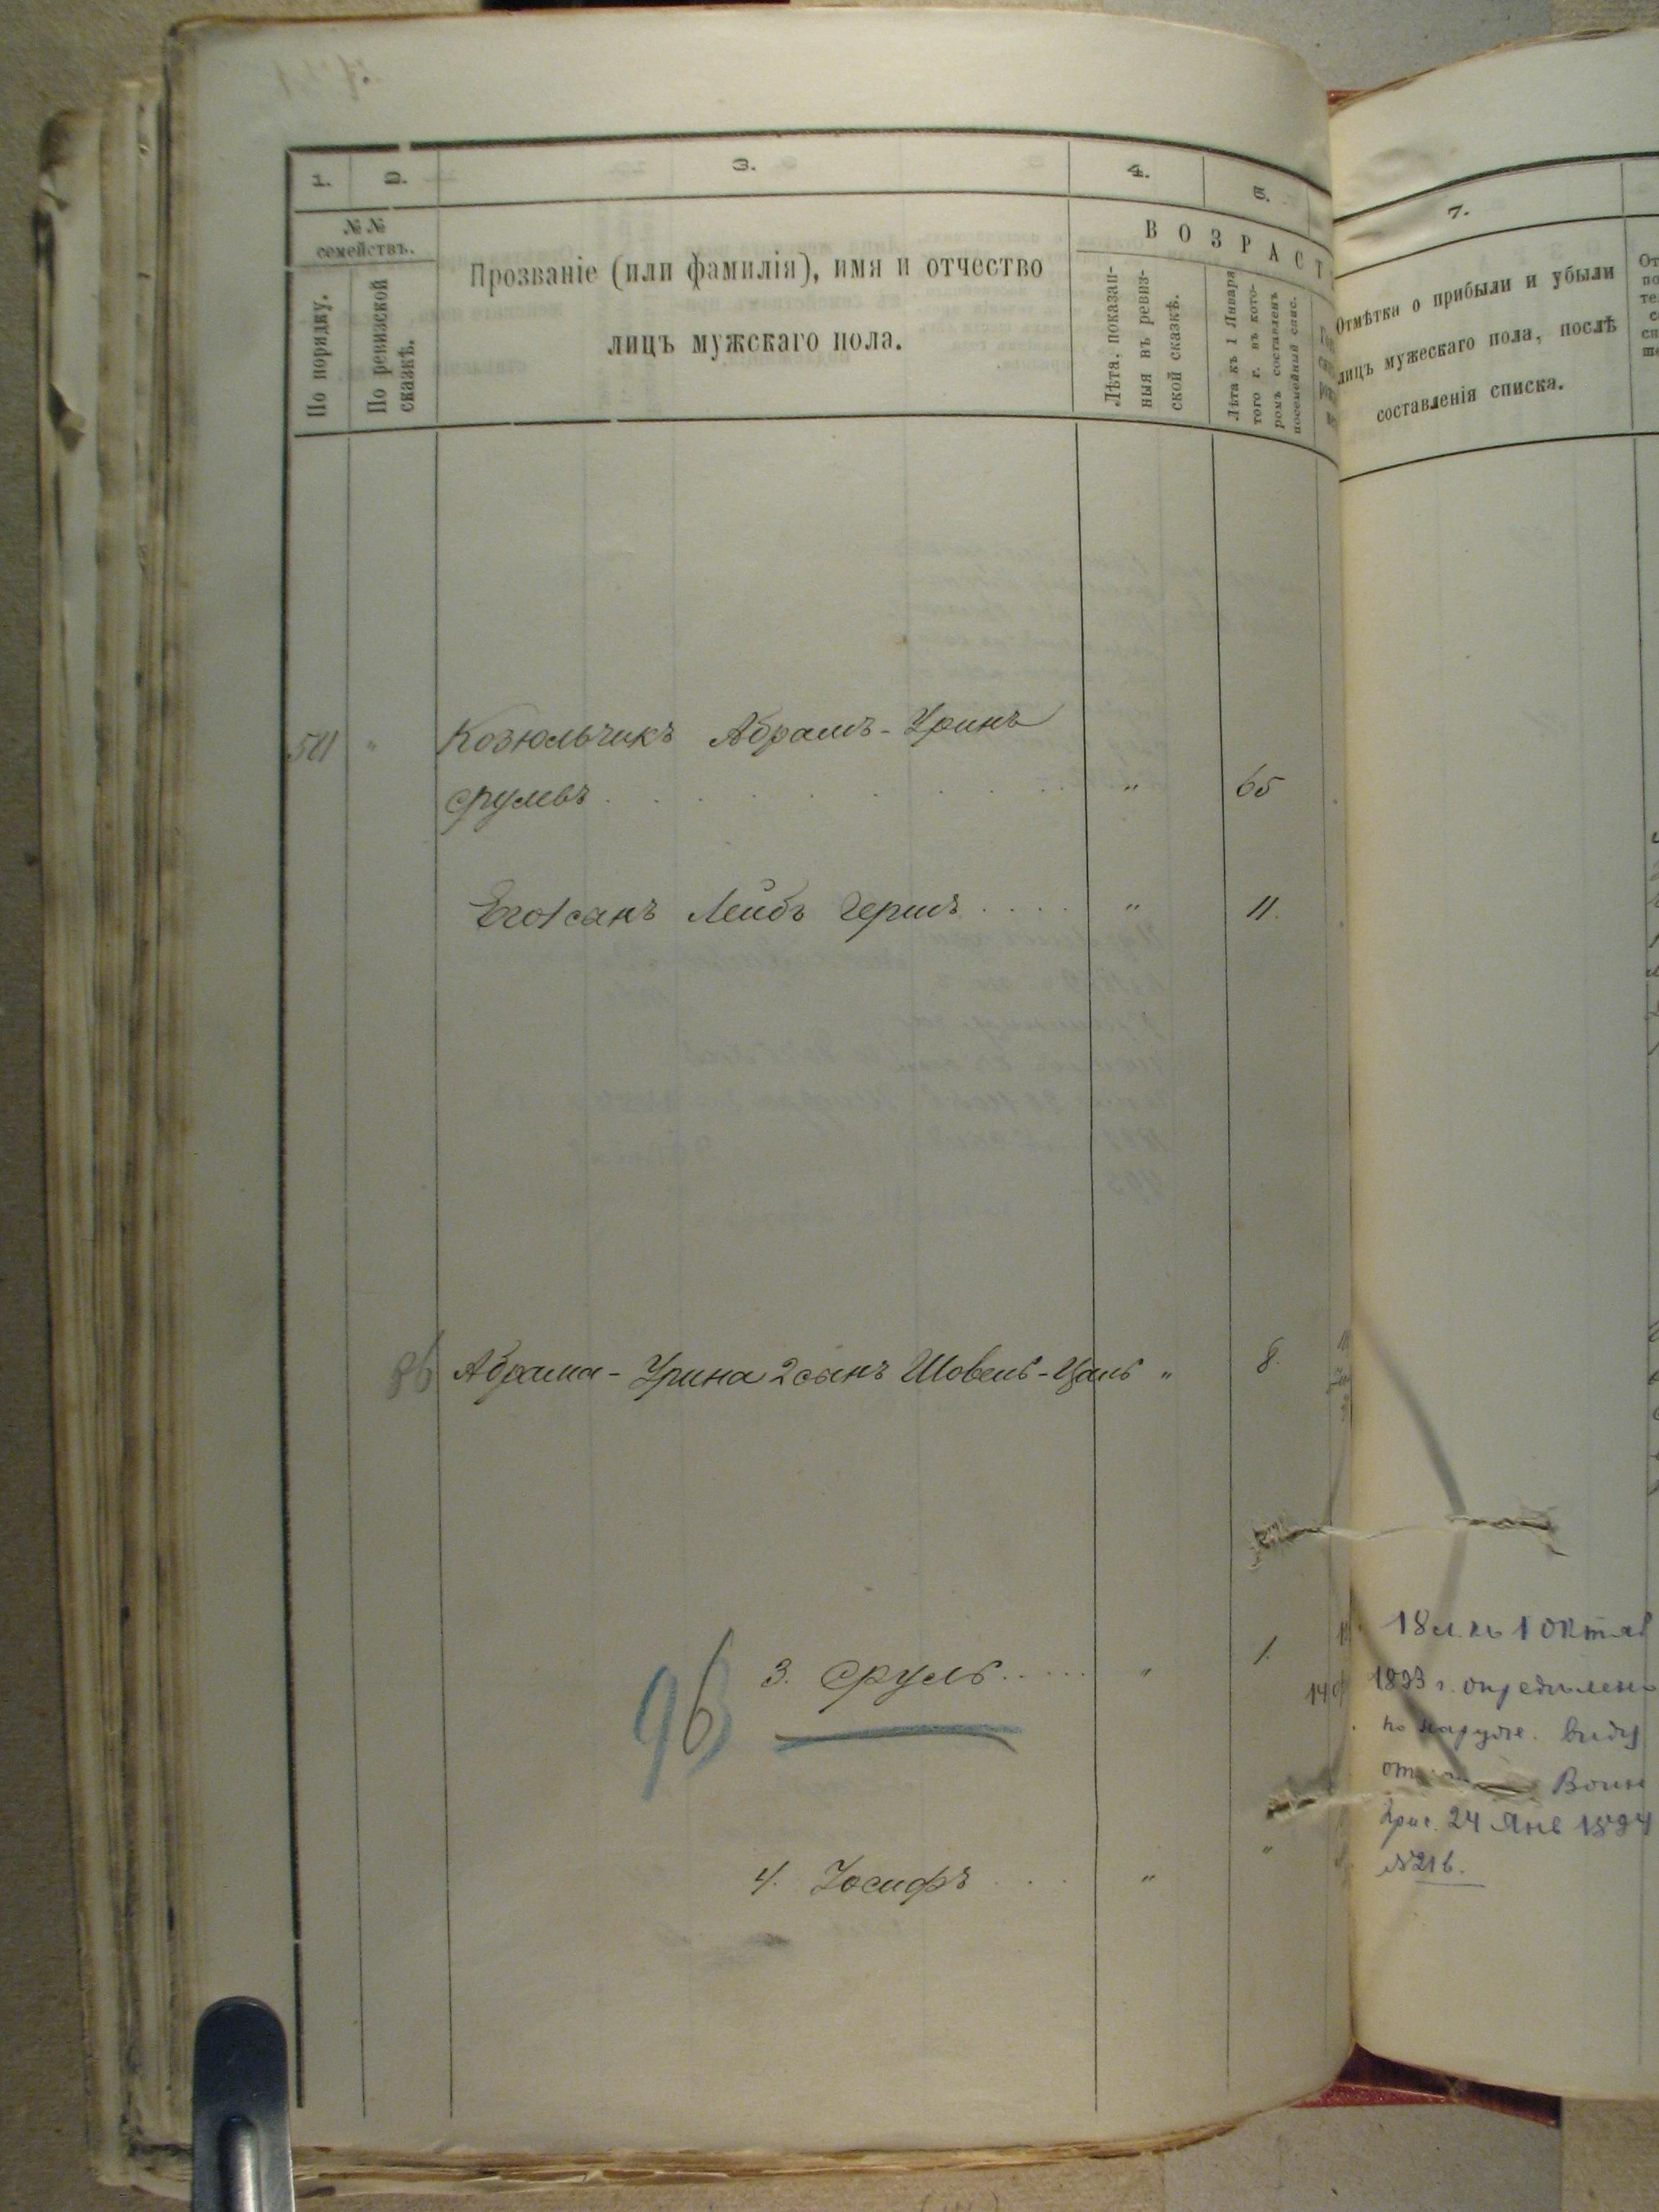 1. 2. 3. 4. 5.
№ № семействъ.
По порядку.
По ревизской сказкѣ.
Прозваніе (или фамилія), имя и отчество
лицъ мужскаго пола.
ВОЗРАСТ
Лѣта, показан-
ныя въ ревиз-
ской сказкѣ.
Лѣта къ 1 Января
того г. въ кото-
ромъ составленъ
посемейный спис.
7.
Отмѣтка о прибыли и убыли
лицъ мужескаго пола, послѣ
составленія списка.
511 " Козюльчикъ Абрамъ-Уринъ
Срулевъ . . . . . . . . " 65
Его 1 сынъ Лейбъ Гершъ . . . . " 11.
86 Абрама-Урина 2 сынъ Шовель-Цаль " 8.
3. Сруль . . . . . " 1.
96
4. Іосифъ . . . " "
18 л. къ 1 Октяб
1893 г. опредѣлено
по наруже. виду
Воин
Прис. 24 Янв 1894
№ 216.